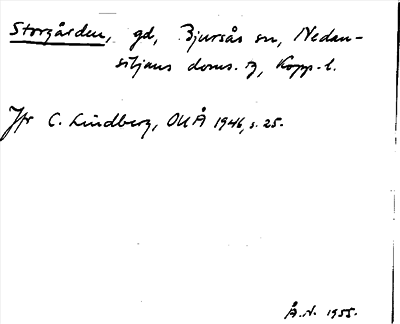 Storgården, gd, Bjursås sn, Nedan-
siljans doms. tg, Kopp. l.
Jfr C. Lindberg, OUÅ 1946, s. 25.
Å.N. 1955.